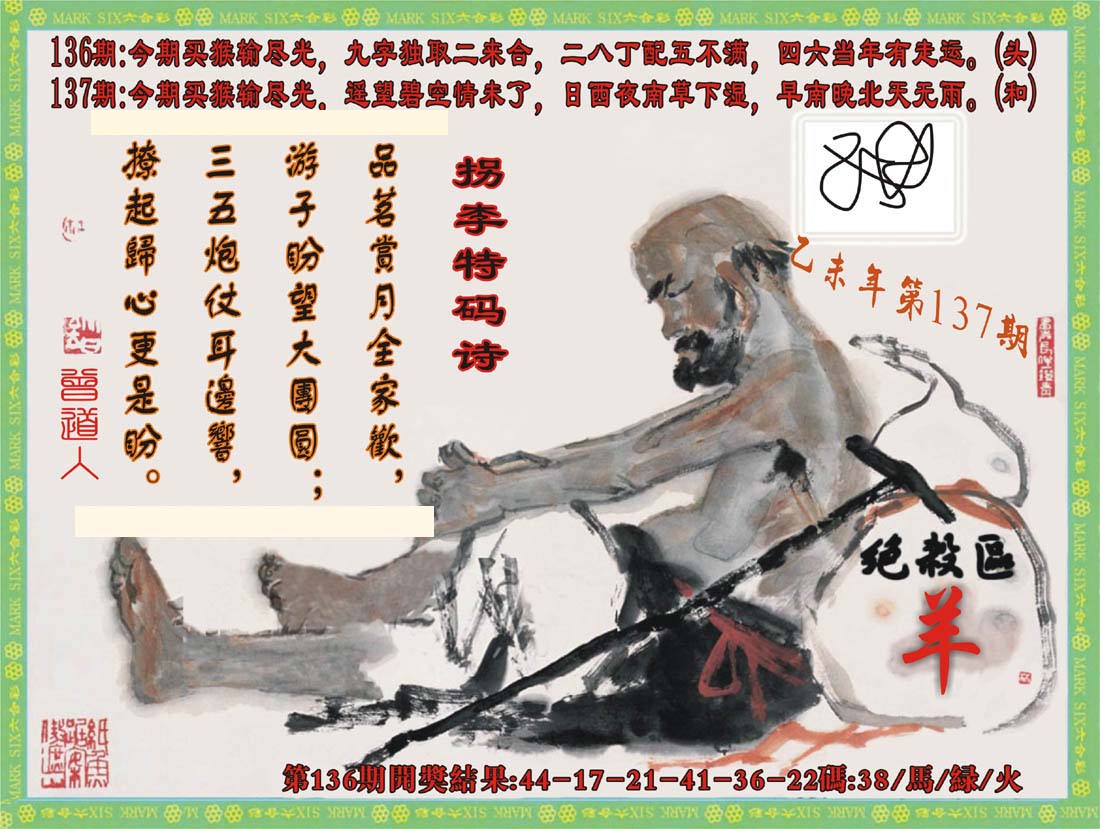 MARK SIX六合彩
136期:今期买猴输尽光，九字独取二来合，二八丁配五不满，四六当年有走运。(头)
137期:今期买猴输尽光，遥望碧空情未了，日西夜南草下湿，早南晚北天无雨。(和)
拐李特码诗
品茗賞月全家歡，
游子盼望大團圓；
三五炮仗耳邊響，
撩起歸心更是盼。
曾道人
乙未年第137期
绝殺區
羊
第136期開獎結果:44-17-21-41-36-22碼:38/馬/緑/火